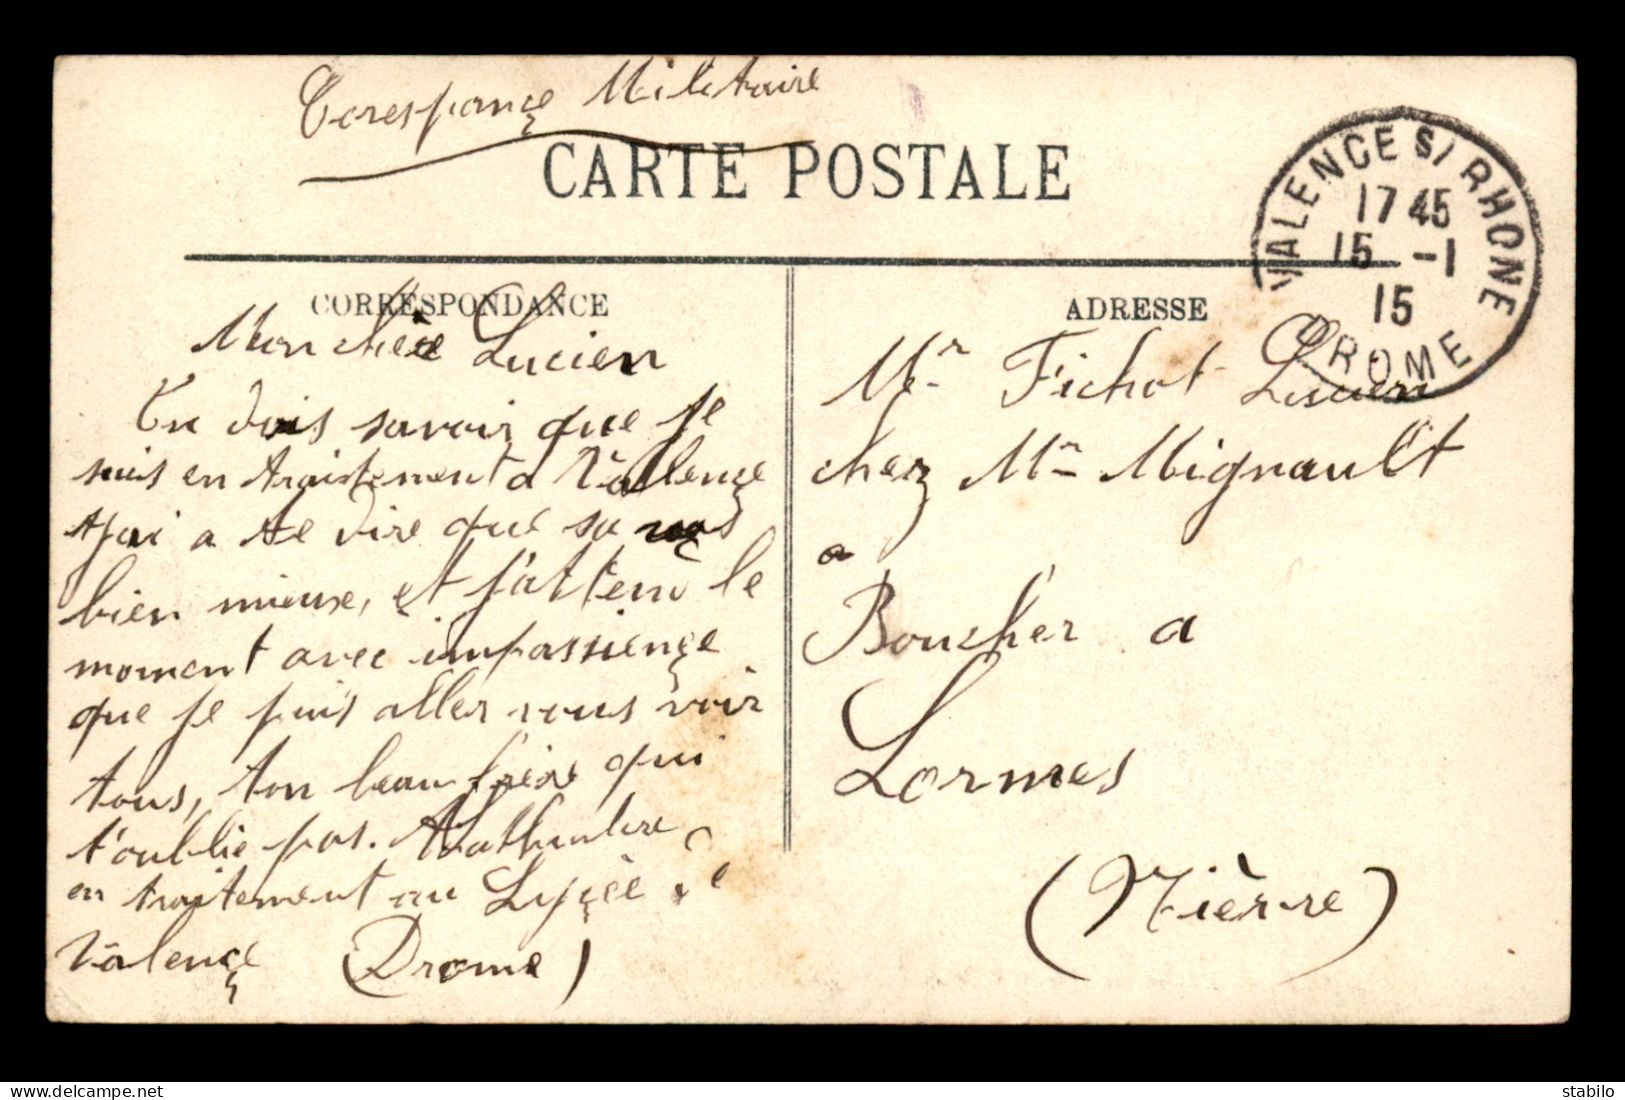 Corespançe Militaire
CARTE POSTALE
VALENCE S/ RHONE
17 45
15 -1
15
DROME
CORRESPONDANCE
Mon chèr Lucien
Tu dois savoir que je
suis en traitement a Valençe
et jai a te dire que sa vas
bien mieux, et j'attend le
moment avec impassiençe
que je puis aller vous voir
tous, ton beau frère qui
t'oublie pas.
en traitement au Lyçèe de
Valençe (Drome)
ADRESSE
Mr Fichot Lucien
chez Mr Mignault
a
Boucher a
Lormes
(Nièvre)
stabilo